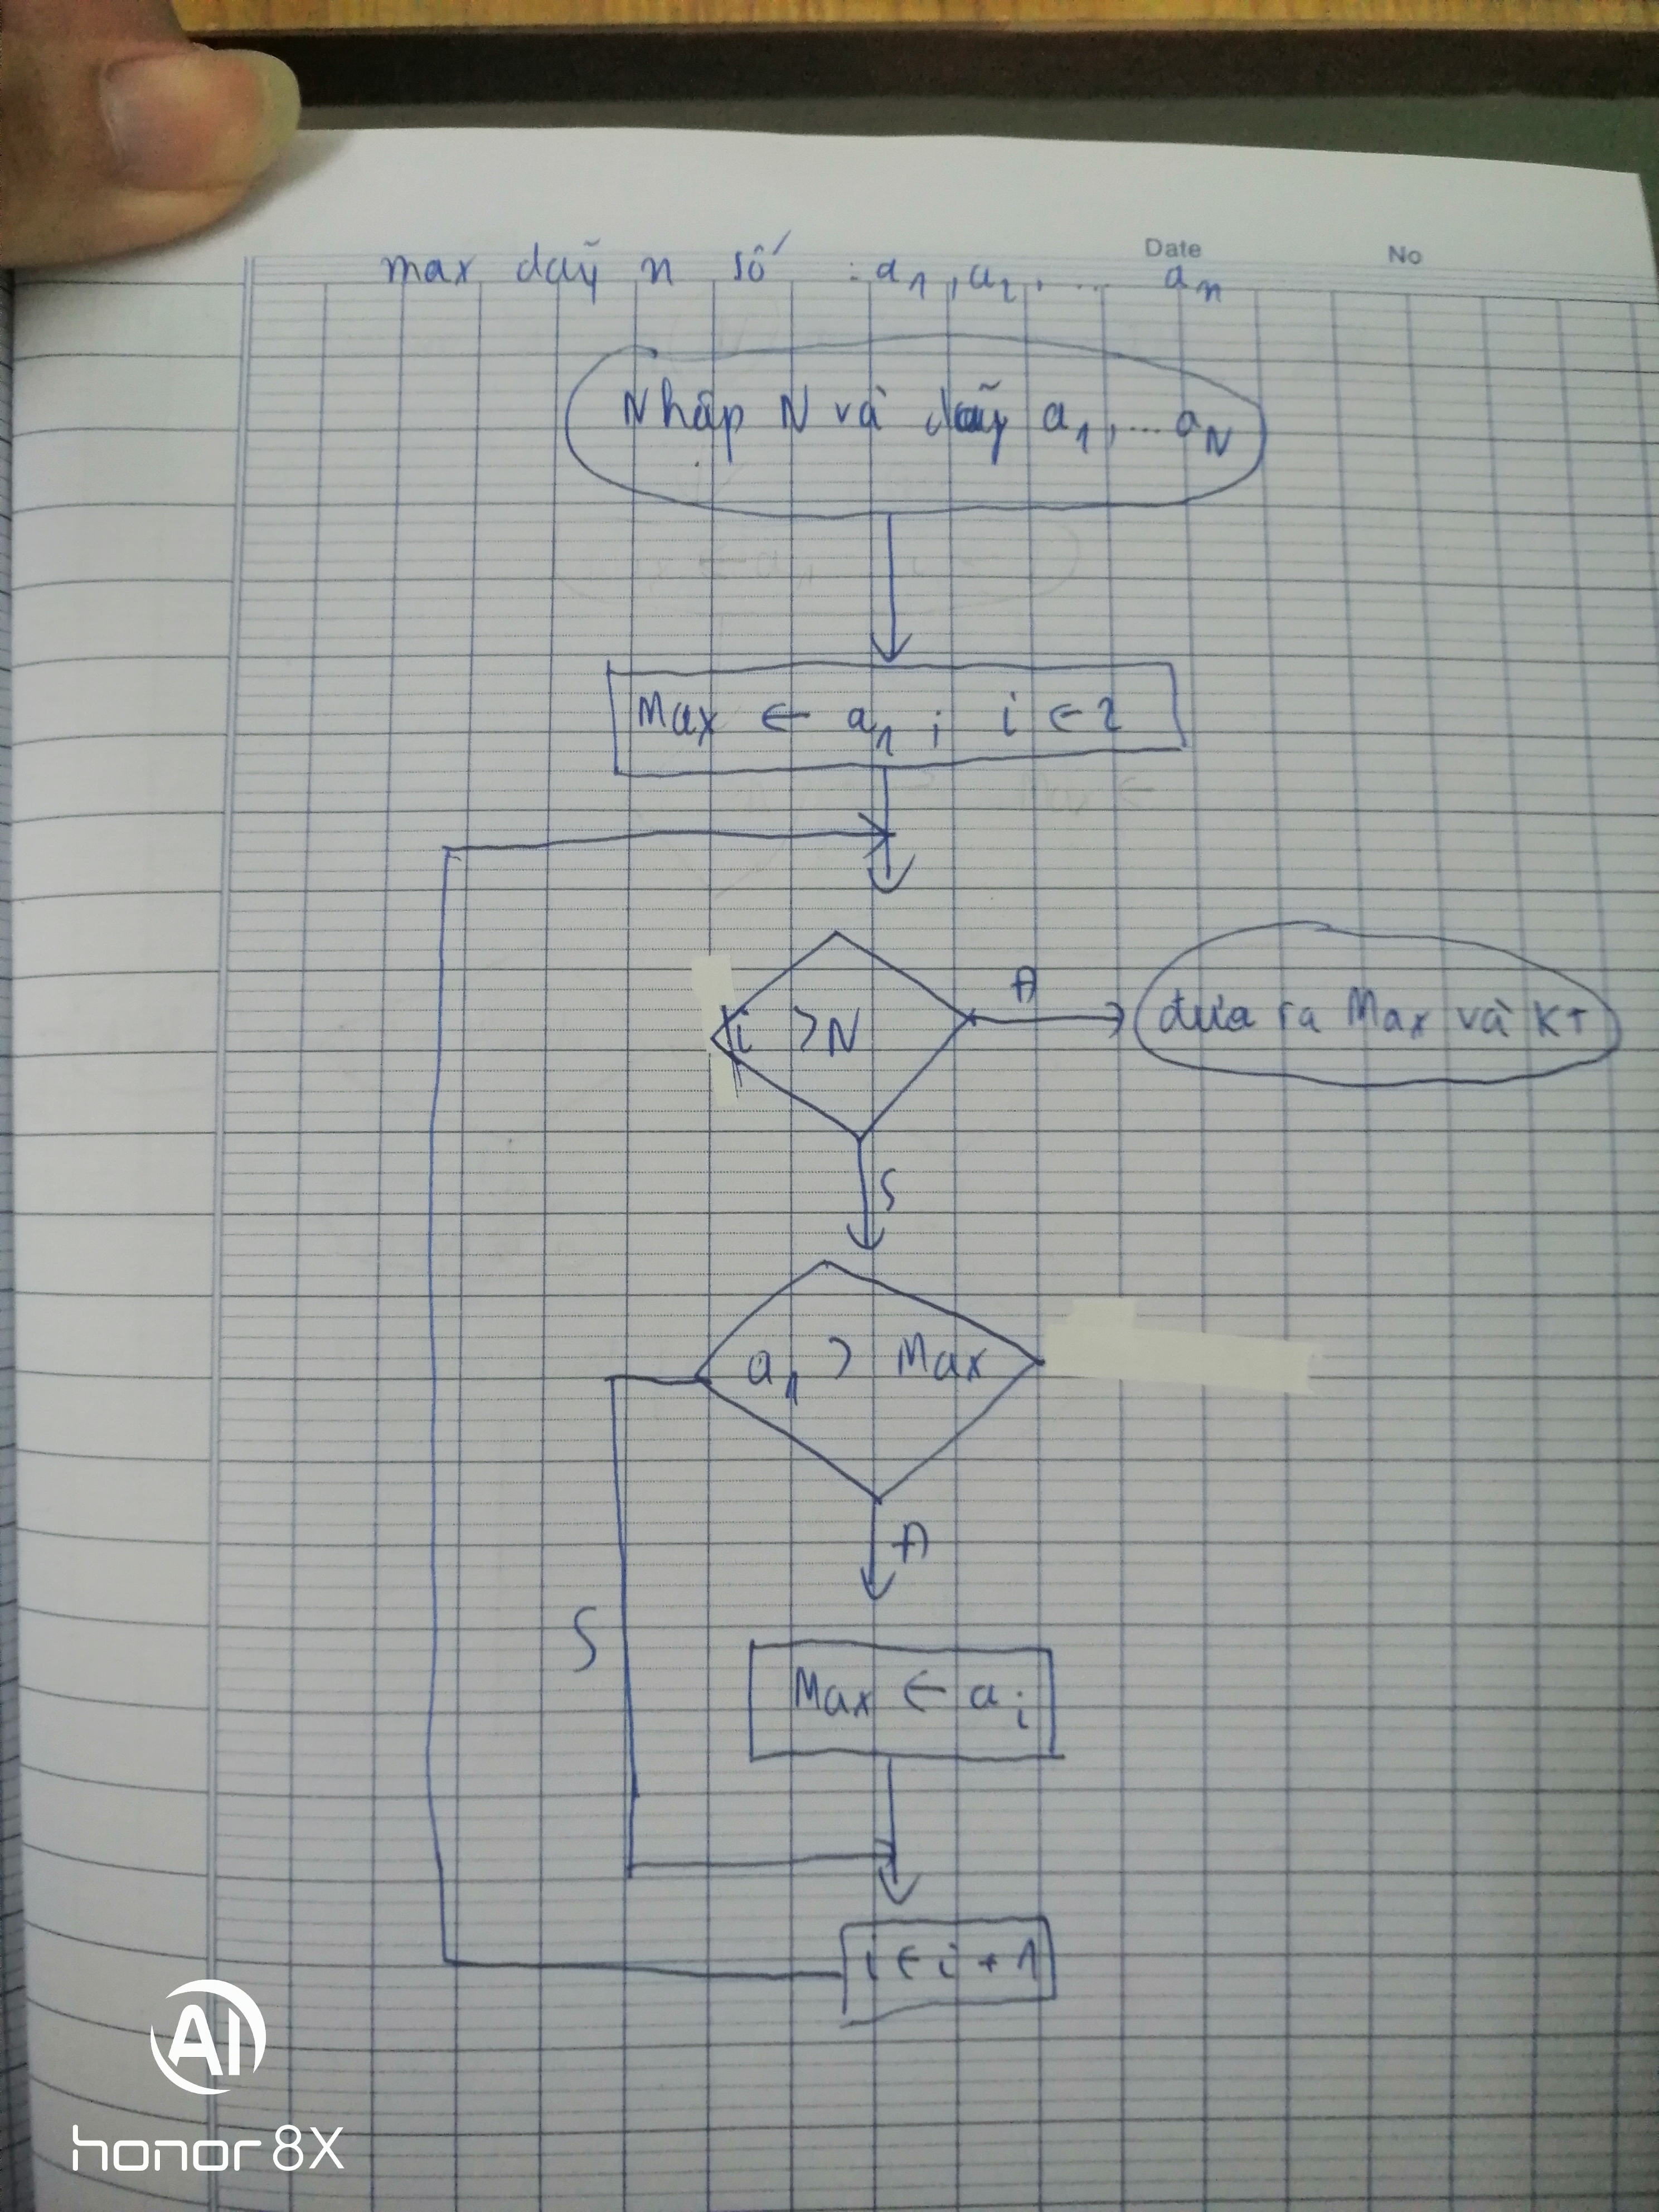 Date No
max dãy n số : a1, a2, ... an
Nhập N và dãy a1, ... aN
Max ← a1; i ← 2
i > N
Đ
đưa ra Max và KT
S
a1 > Max
Đ
S
Max ← ai
i ← i + 1
AI
honor 8X